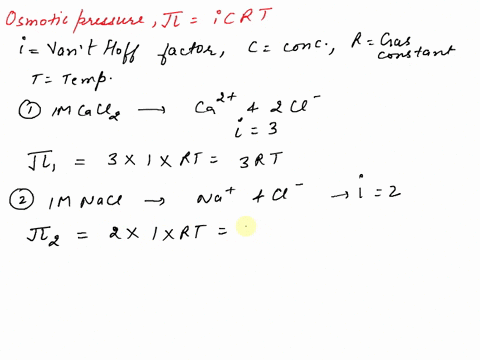 Osmotic pressure, π = iCRT
i = Van't Hoff factor, C = conc., R = Gas constant
T = Temp.
① 1M CaCl₂ → Ca²⁺ + 2Cl⁻
i = 3
π₁ = 3 × 1 × RT = 3RT
② 1M NaCl → Na⁺ + Cl⁻ → i = 2
π₂ = 2 × 1 × RT =